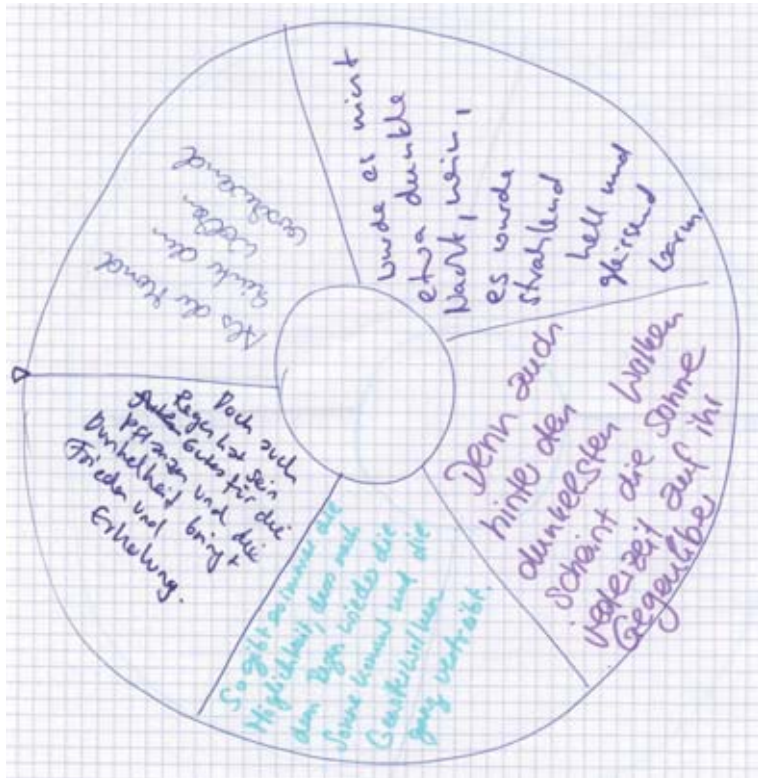 Als der Mond
hinter den
Wolken
verschwand
wurde es nicht
etwa dunkle
Nacht, nein,
es wurde
strahlend
hell und
gleissend
warm.
Denn auch
hinter den
dunkelsten Wolken
scheint die Sonne
jederzeit auf ihr
Gegenüber
So gibt es immer die
Möglichkeit, dass nach
dem Regen wieder die
Sonne kommt und die
Gewitterwolken
ganz vertreibt.
Doch auch
Regen hat sein
Gutes für die
Pflanzen und die
Dunkelheit bringt
Frieden und
Erholung.